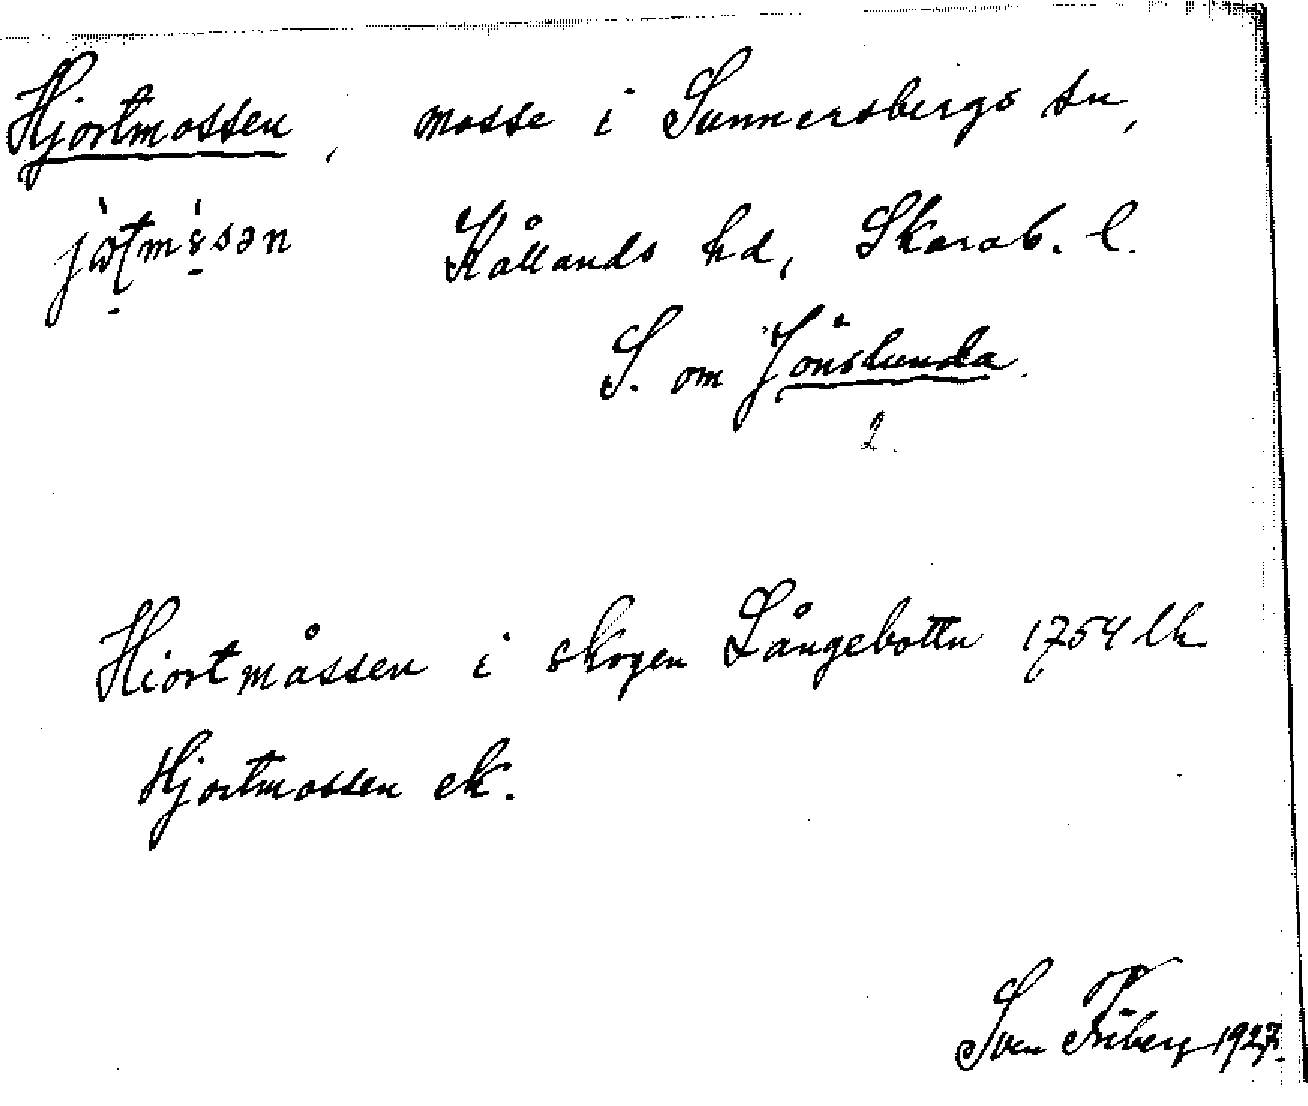 Hjortmossen, mosse i Sunnersbergs sn,
Kållands hd, Skarab. l.
S. om Jönslunda.
2.
Hiortmåssen i skogen Långebottn 1754 lh
Hjortmossen ek.
Sven Friberg 1927.